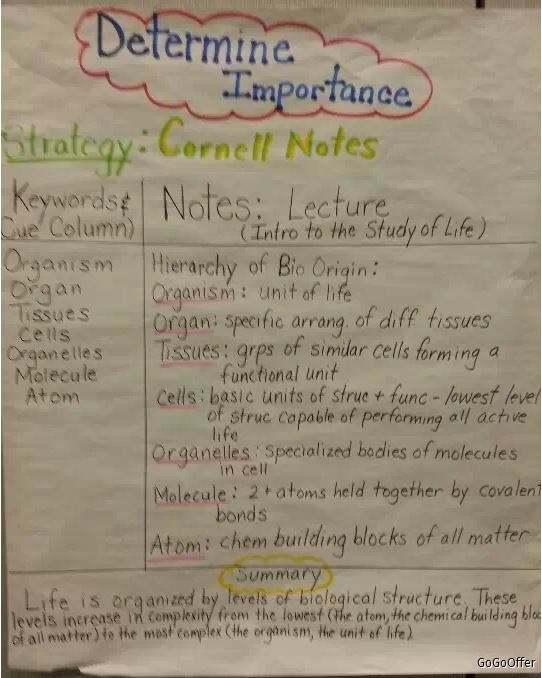 Determine
Importance
Strategy: Cornell Notes
Keywords &
Cue Column)
Notes: Lecture
(Intro to the Study of Life)
Organism
Organ
Tissues
Cells
Organelles
Molecule
Atom
Hierarchy of Bio Origin:
Organism: unit of life
Organ: specific arrang. of diff tissues
Tissues: grps of similar cells forming a
functional unit
Cells: basic units of struc + func - lowest level
of struc capable of performing all active
life
Organelles: Specialized bodies of molecules
in cell
Molecule: 2+ atoms held together by covalent
bonds
Atom: chem building blocks of all matter
Summary
Life is organized by levels of biological structure. These
levels increase in complexity from the lowest (the atom, the chemical building bloc
of all matter) to the most complex (the organism, the unit of life)
GoGoOffer